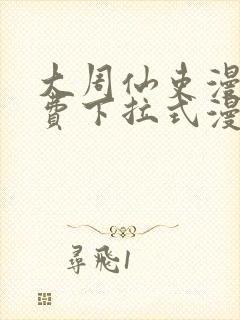 大周仙吏漫
费下拉式漫
尋飛1